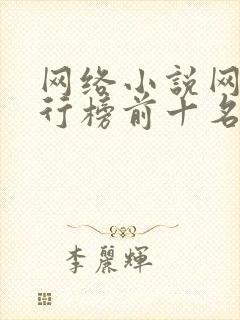 网络小说网
行榜前十名
李麗輝